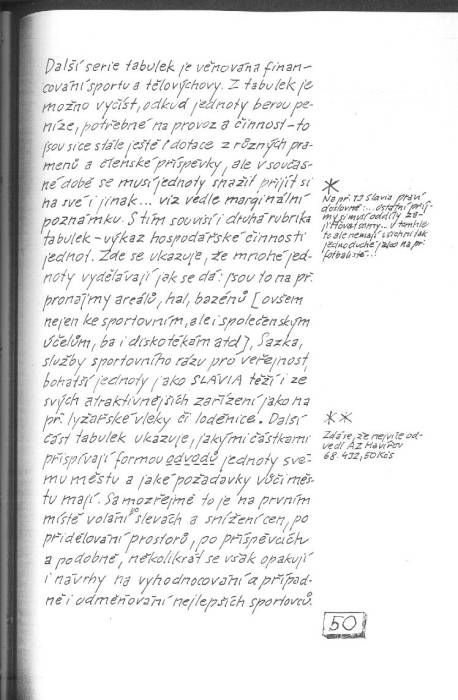 Další serie tabulek je věnována finan-
cování sportu a tělovýchovy. Z tabulek je
možno vyčíst, odkud jednoty berou pe-
níze, potřebné na provoz a činnost – to
jsou sice stále ještě i dotace z různých pra-
menů a členské příspěvky, ale v součas-
né době se musí jednoty snažit přijít si
na své i jinak... viz vedle marginální
poznámku. S tím souvisí i druhá rubrika
tabulek – výkaz hospodářské činnosti
jednot. Zde se ukazuje, že mnohé jed-
noty vydělávají jak se dá: jsou to na př.
pronájmy areálů, hal, bazénů [ovšem
nejen ke sportovním, ale i společenským
účelům, ba i diskotékám atd], Sazka,
služby sportovního rázu pro veřejnost,
bohatší jednoty jako SLAVIA těží i ze
svých atraktivnějších zařízení jako na
př. lyžařské vleky či loděnice. Další
část tabulek ukazuje, jakými částkami
přispívají formou odvodů jednoty své-
mu městu a jaké požadavky vůči měs-
tu mají. Samozřejmě to je na prvním
místě volání po slevách a snížení cen, po
přidělování prostorů, po příspěvcích
a podobně, několikrát se však opakují
i návrhy na vyhodnocování a případ-
ně i odměňování nejlepších sportovců.
*
Na př. TJ Slavia praví
doslovně: ... ostatní příj-
my si musí oddíly za-
jišťovat samy... v tomhle
to ale nemají všichni tak
jednoduché jako na př.
fotbalisté...!
**
Zdá se, že nejvíce od-
vedl AZ Havířov
68.432,50 Kčs
50